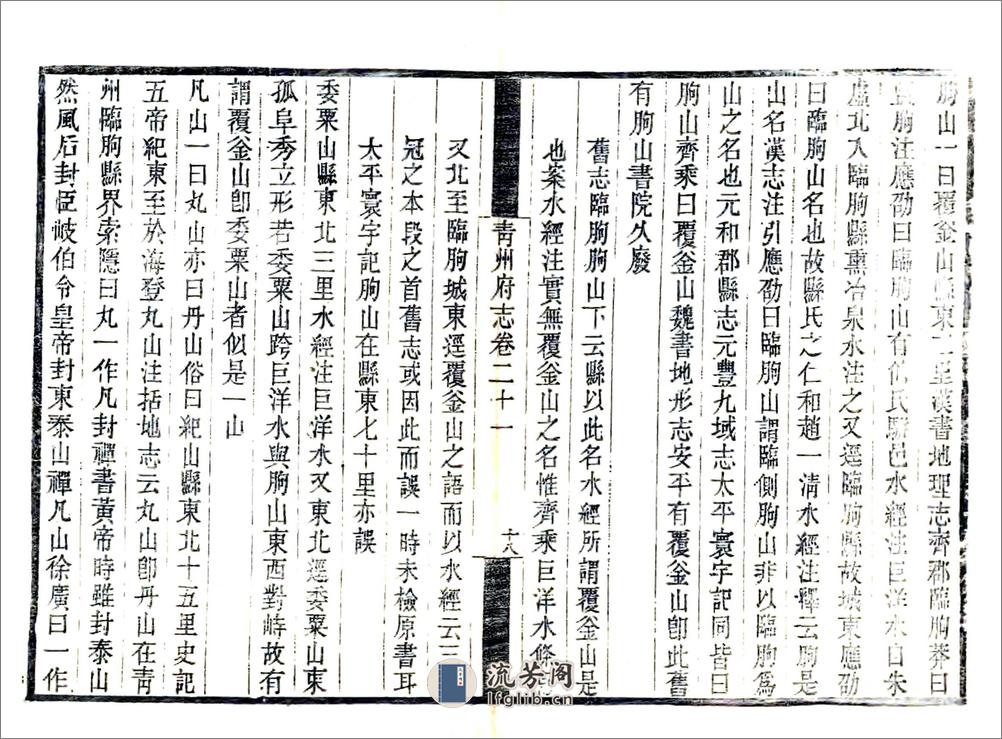 朐山一曰覆釜山縣東二里漢書地理志齊郡臨朐莽曰
朐注應劭曰臨朐山有伯氏駢邑水經注巨洋水自朱
虛北入臨朐縣熏冶泉水注之又逕臨朐縣故城東應劭
曰臨朐山名也故縣氏之仁和趙一清水經注釋云朐是
山名漢志注引應劭曰臨朐山謂臨側朐山非以臨朐爲
山之名也元和郡縣志元豐九域志太平寰宇記同皆曰
朐山齊乘曰覆釜山魏書地形志安平有覆釜山卽此舊
有朐山書院久廢
舊志臨朐朐山下云縣以此名水經所謂覆釜山是
也案水經注實無覆釜山之名惟齊乘巨洋水條
青州府志卷二十一
十八
又北至臨朐城東逕覆釜山之語而以水經云三
冠之本段之首舊志或因此而誤一時未檢原書耳
太平寰宇記朐山在縣東七十里亦誤
委粟山縣東北三里水經注巨洋水又東北逕委粟山東
孤阜秀立形若委粟山跨巨洋水與朐山東西對峙故有
謂覆釜山卽委粟山者似是一山
凡山一曰丸山亦曰丹山俗曰紀山縣東北十五里史記
五帝紀東至於海登丸山注括地志云丸山卽丹山在青
州臨朐縣界索隱曰丸一作凡封禪書黃帝時雖封泰山
然風后封臣岐伯令皇帝封東泰山禪凡山徐廣曰一作
流芳阁
lfglib.cn